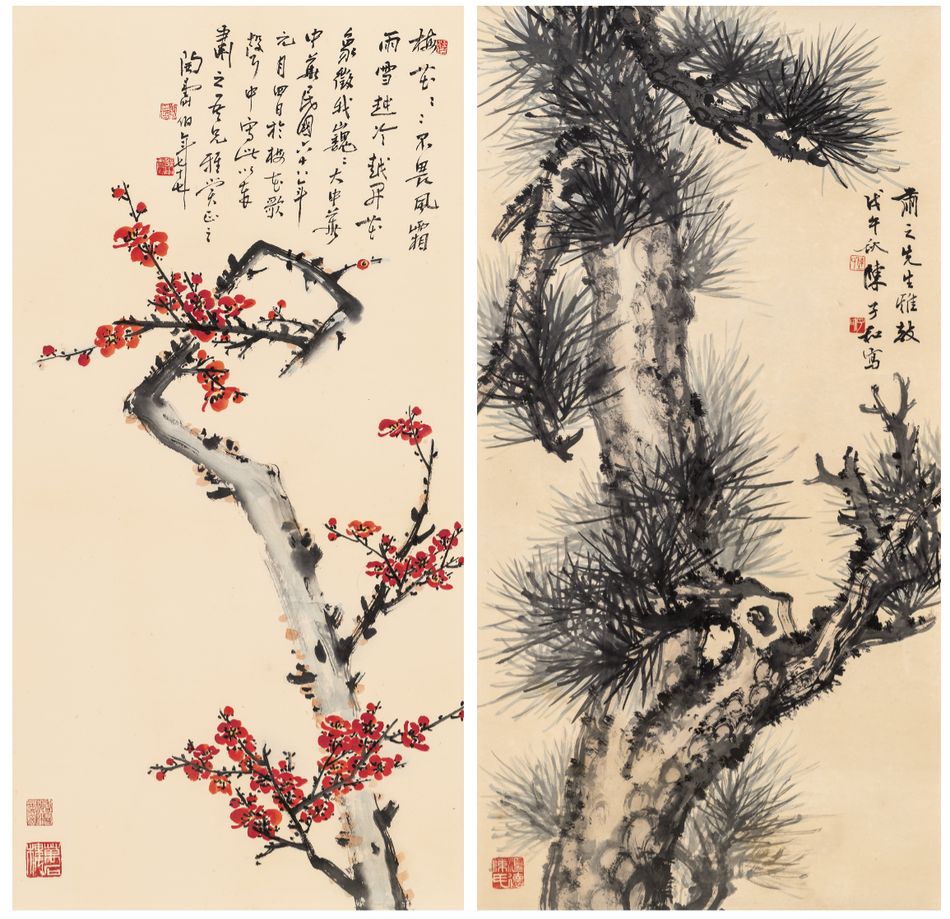 梅花〻〻不畏風霜
雨雪越冷越開花
象徵我巍〻大中華
中華民國六十八年
元月四日於梅花歌
聲中寫此以奉
肅之吾兄雅賞正之
陶壽伯年七十七
萬石樓
肅之先生雅教
戊午秋陳子和寫